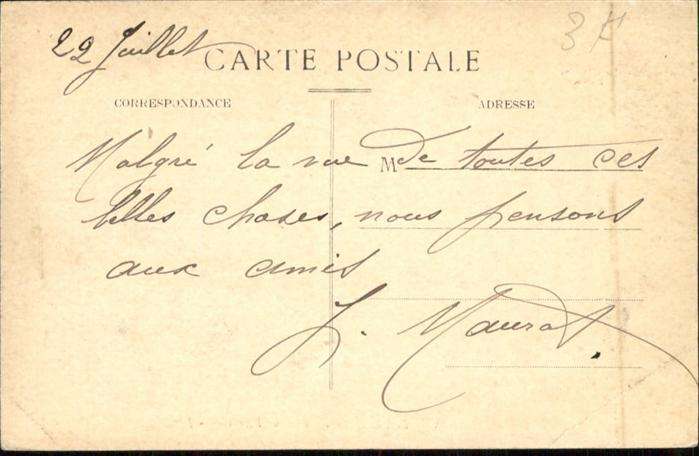 22 Juillet
3 F
CARTE POSTALE
CORRESPONDANCE
ADRESSE
Malgré la vue M de toutes ces
belles choses, nous pensons
aux amis
J. Maurat.